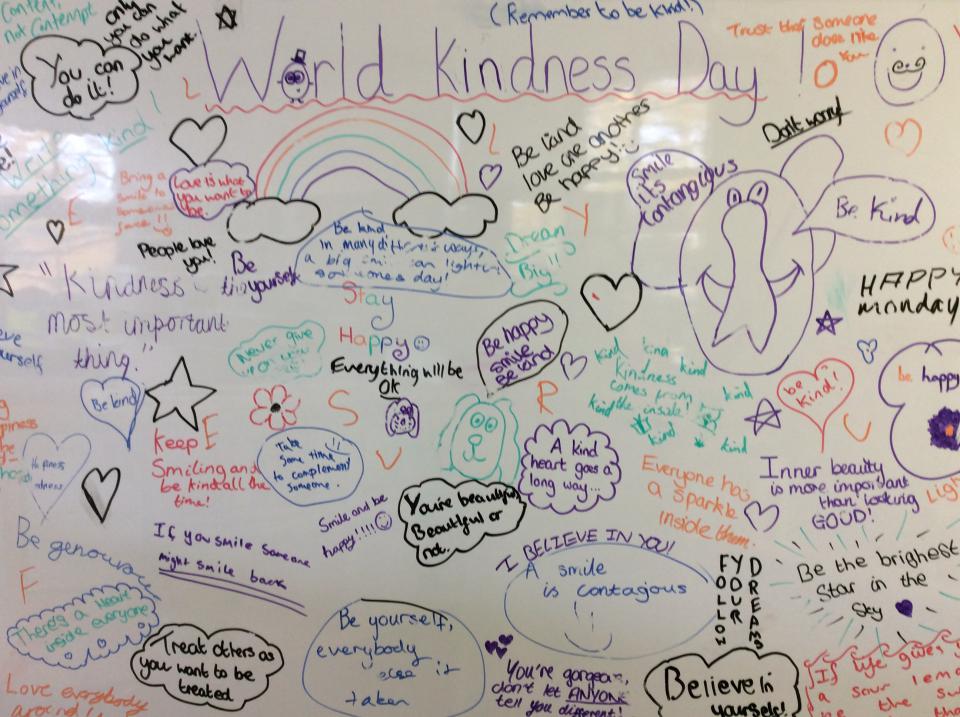 Content,
not Contempt
only
you can
do what
you
want.
(Remember to be kind!)
Trust that someone
does like
You
You can
do it!
World Kindness Day!
Don't worry!
Be kind
love one another
Be happy!
Smile
its
Contangious
Be Kind
Write
Something kind!
Bring a
smile to
Someones
face !!
Love is what
you want to
be.
People love
you!
Be
yourself
Be kind
in many different ways,
a big
day!
Dream
Big!!
HAPPY
monday
"Kindness
most important
thing."
Stay
Happy
Never give
Everything will be
OK
Be happy
smile
Be kind
kind
kind
Kindness
comes from
the inside!
kind
kind
kind
kind
be
kind!
be happy
Be kind
Keep
Smiling and
be kind all the
time!
Take
some time
to complement
someone.
A kind
heart goes a
long way...
Everyone has
a sparkle
inside them.
Inner beauty
is more important
than looking
GOUD!
Happiness
Smile and be
happy !!!!
You're beautiful,
Beautiful or
not.
Be genouine
If you smile someone
might smile back
I BELIEVE IN YOU!
A smile
is contagous
FOLLOW
YOUR
DREAMS
Be the brightest
Star in the
Sky
There's a heart
inside everyone
Treat others as
you want to be
treated
Be yourself,
everybody
else is
taken
You're gorgeous,
don't let ANYONE
tell you different!
Believe in
yourself!
If life gives
a sour
the
Love everybody
around